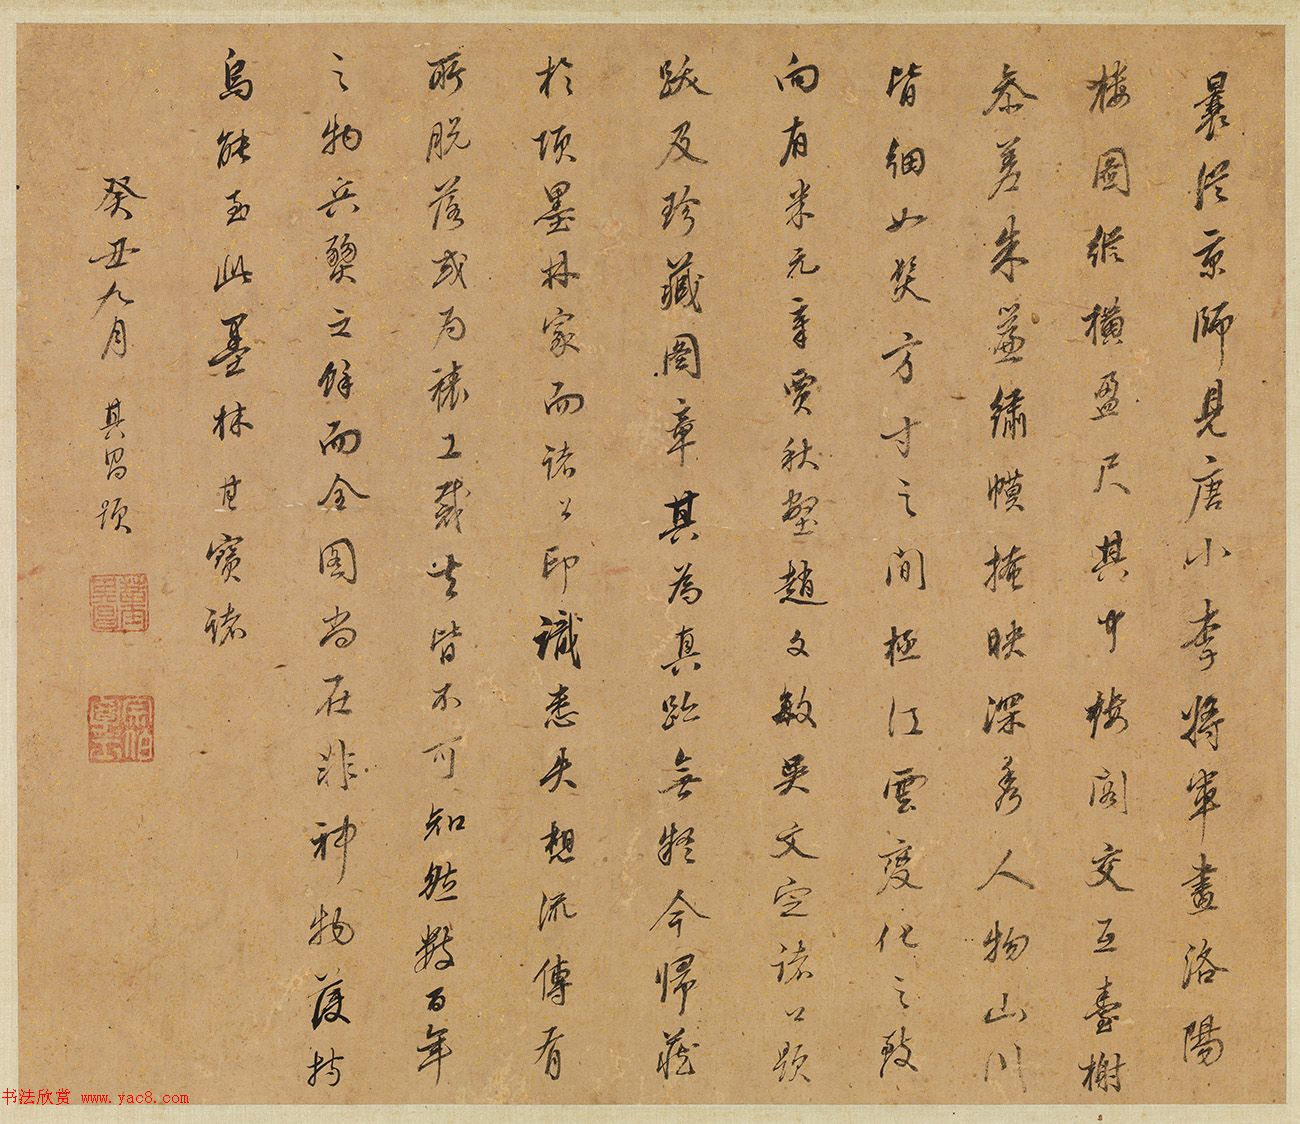 曩從京師見唐小李將軍畫洛陽
樓圖縱橫盈尺其中樓閣交互臺榭
參差朱簾繡幙掩映深秀人物山川
皆細如髮方寸之間極江雲變化之致
向有米元章賈秋壑趙文敏吳文定諸公題
跋及珍藏圖章其為真跡無疑今歸藏
於項墨林家而諸公印識悉失想流傳有
所脫落或為裱工裁去皆不可知然數百年
之物兵燹之餘而全圖尚在非神物護持
烏能至此墨林其寶諸
癸丑九月 其昌題
董其昌
书法欣赏 www.yac8.com